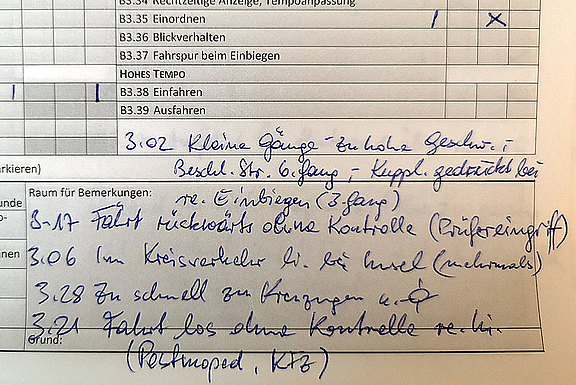 B3.34 Rechtzeitige Anzeige, Tempoanpassung
B3.35 Einordnen
B3.36 Blickverhalten
B3.37 Fahrspur beim Einbiegen
HOHES TEMPO
B3.38 Einfahren
B3.39 Ausfahren
3.02 Kleine Gänge - zu hohe Geschw. ;
arkieren)
Beschl. Str. 6. gang ; - Kuppl. gedrückt bei
Raum für Bemerkungen:
re. Einbiegen (3. gang)
unde
3.17 Fährt rückwärts ohne Kontrolle (Prüfereingriff)
o-
nen
3.06 Im Kreisverkehr li. bei Insel (mehrmals)
3.28 Zu schnell zu Kreuzungen u.
3.21 Fährt los ohne Kontrolle re. li.
Grund:
(Postmoped, KFZ)